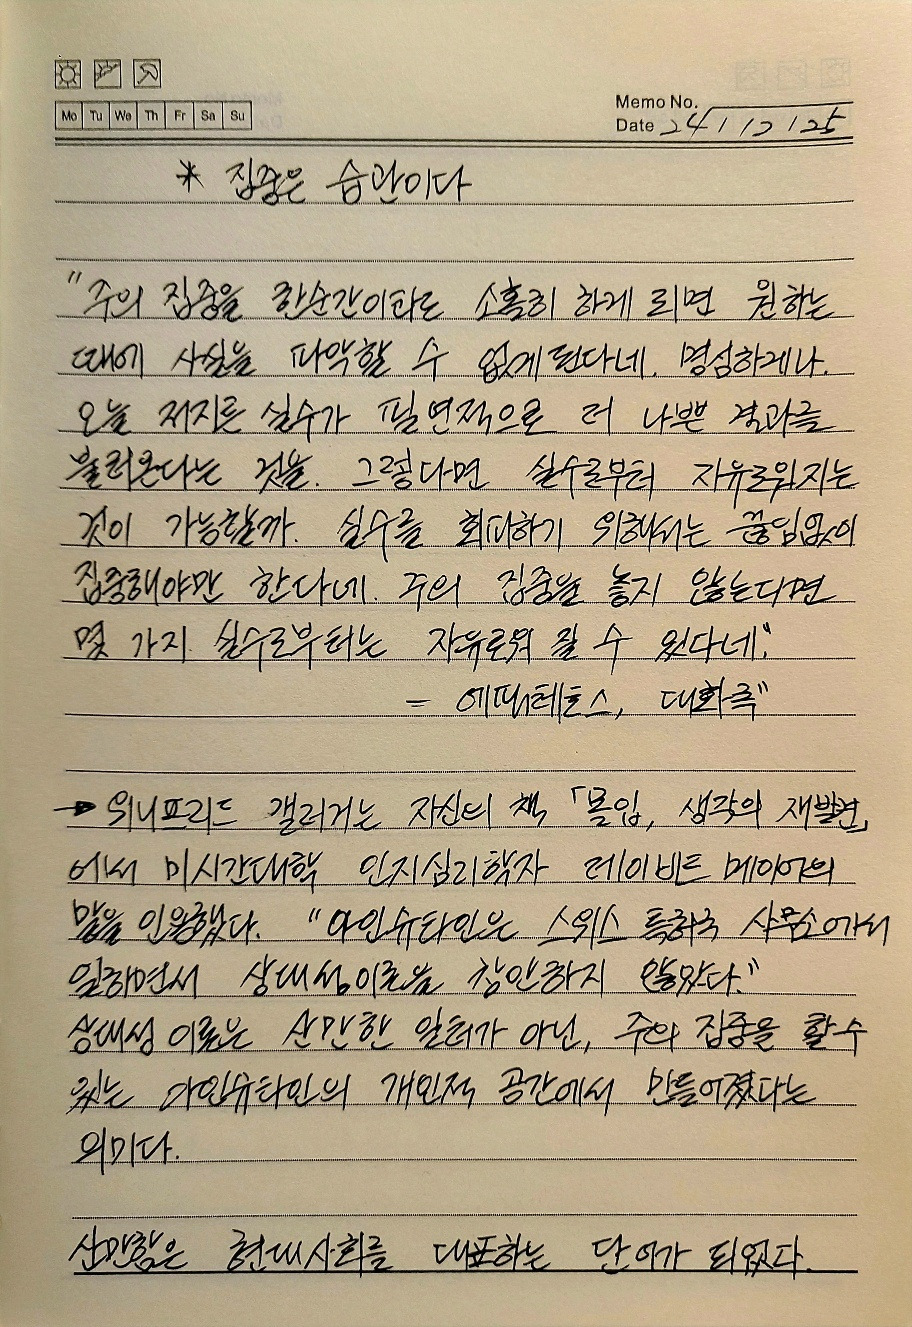 Mo Tu We Th Fr Sa Su
Memo No.
Date 24/12/25
* 집중은 습관이다
"주의 집중을 한순간이라도 소홀히 하게 되면 원하는
때에 사실을 파악할 수 없게 된다네. 명심하게나.
오늘 저지른 실수가 필연적으로 더 나쁜 결과를
불러온다는 것을. 그렇다면 실수로부터 자유로워지는
것이 가능할까. 실수를 회피하기 위해서는 끊임없이
집중해야만 한다네. 주의 집중을 놓지 않는다면
몇 가지 실수로부터는 자유로워 질 수 있다네."
- 에픽테토스, 대화록"
→ 위니프리드 갤러거는 자신의 책 「몰입, 생각의 재발견」
에서 미시간대학 인지심리학자 데이비드 메이어의
말을 인용했다. "아인슈타인은 스위스 특허국 사무소에서
일하면서 상대성이론을 창안하지 않았다."
상대성 이론은 산만한 일터가 아닌, 주의 집중을 할 수
있는 아인슈타인의 개인적 공간에서 만들어졌다는
의미다.
산만함은 현대사회를 대표하는 단어가 되었다.